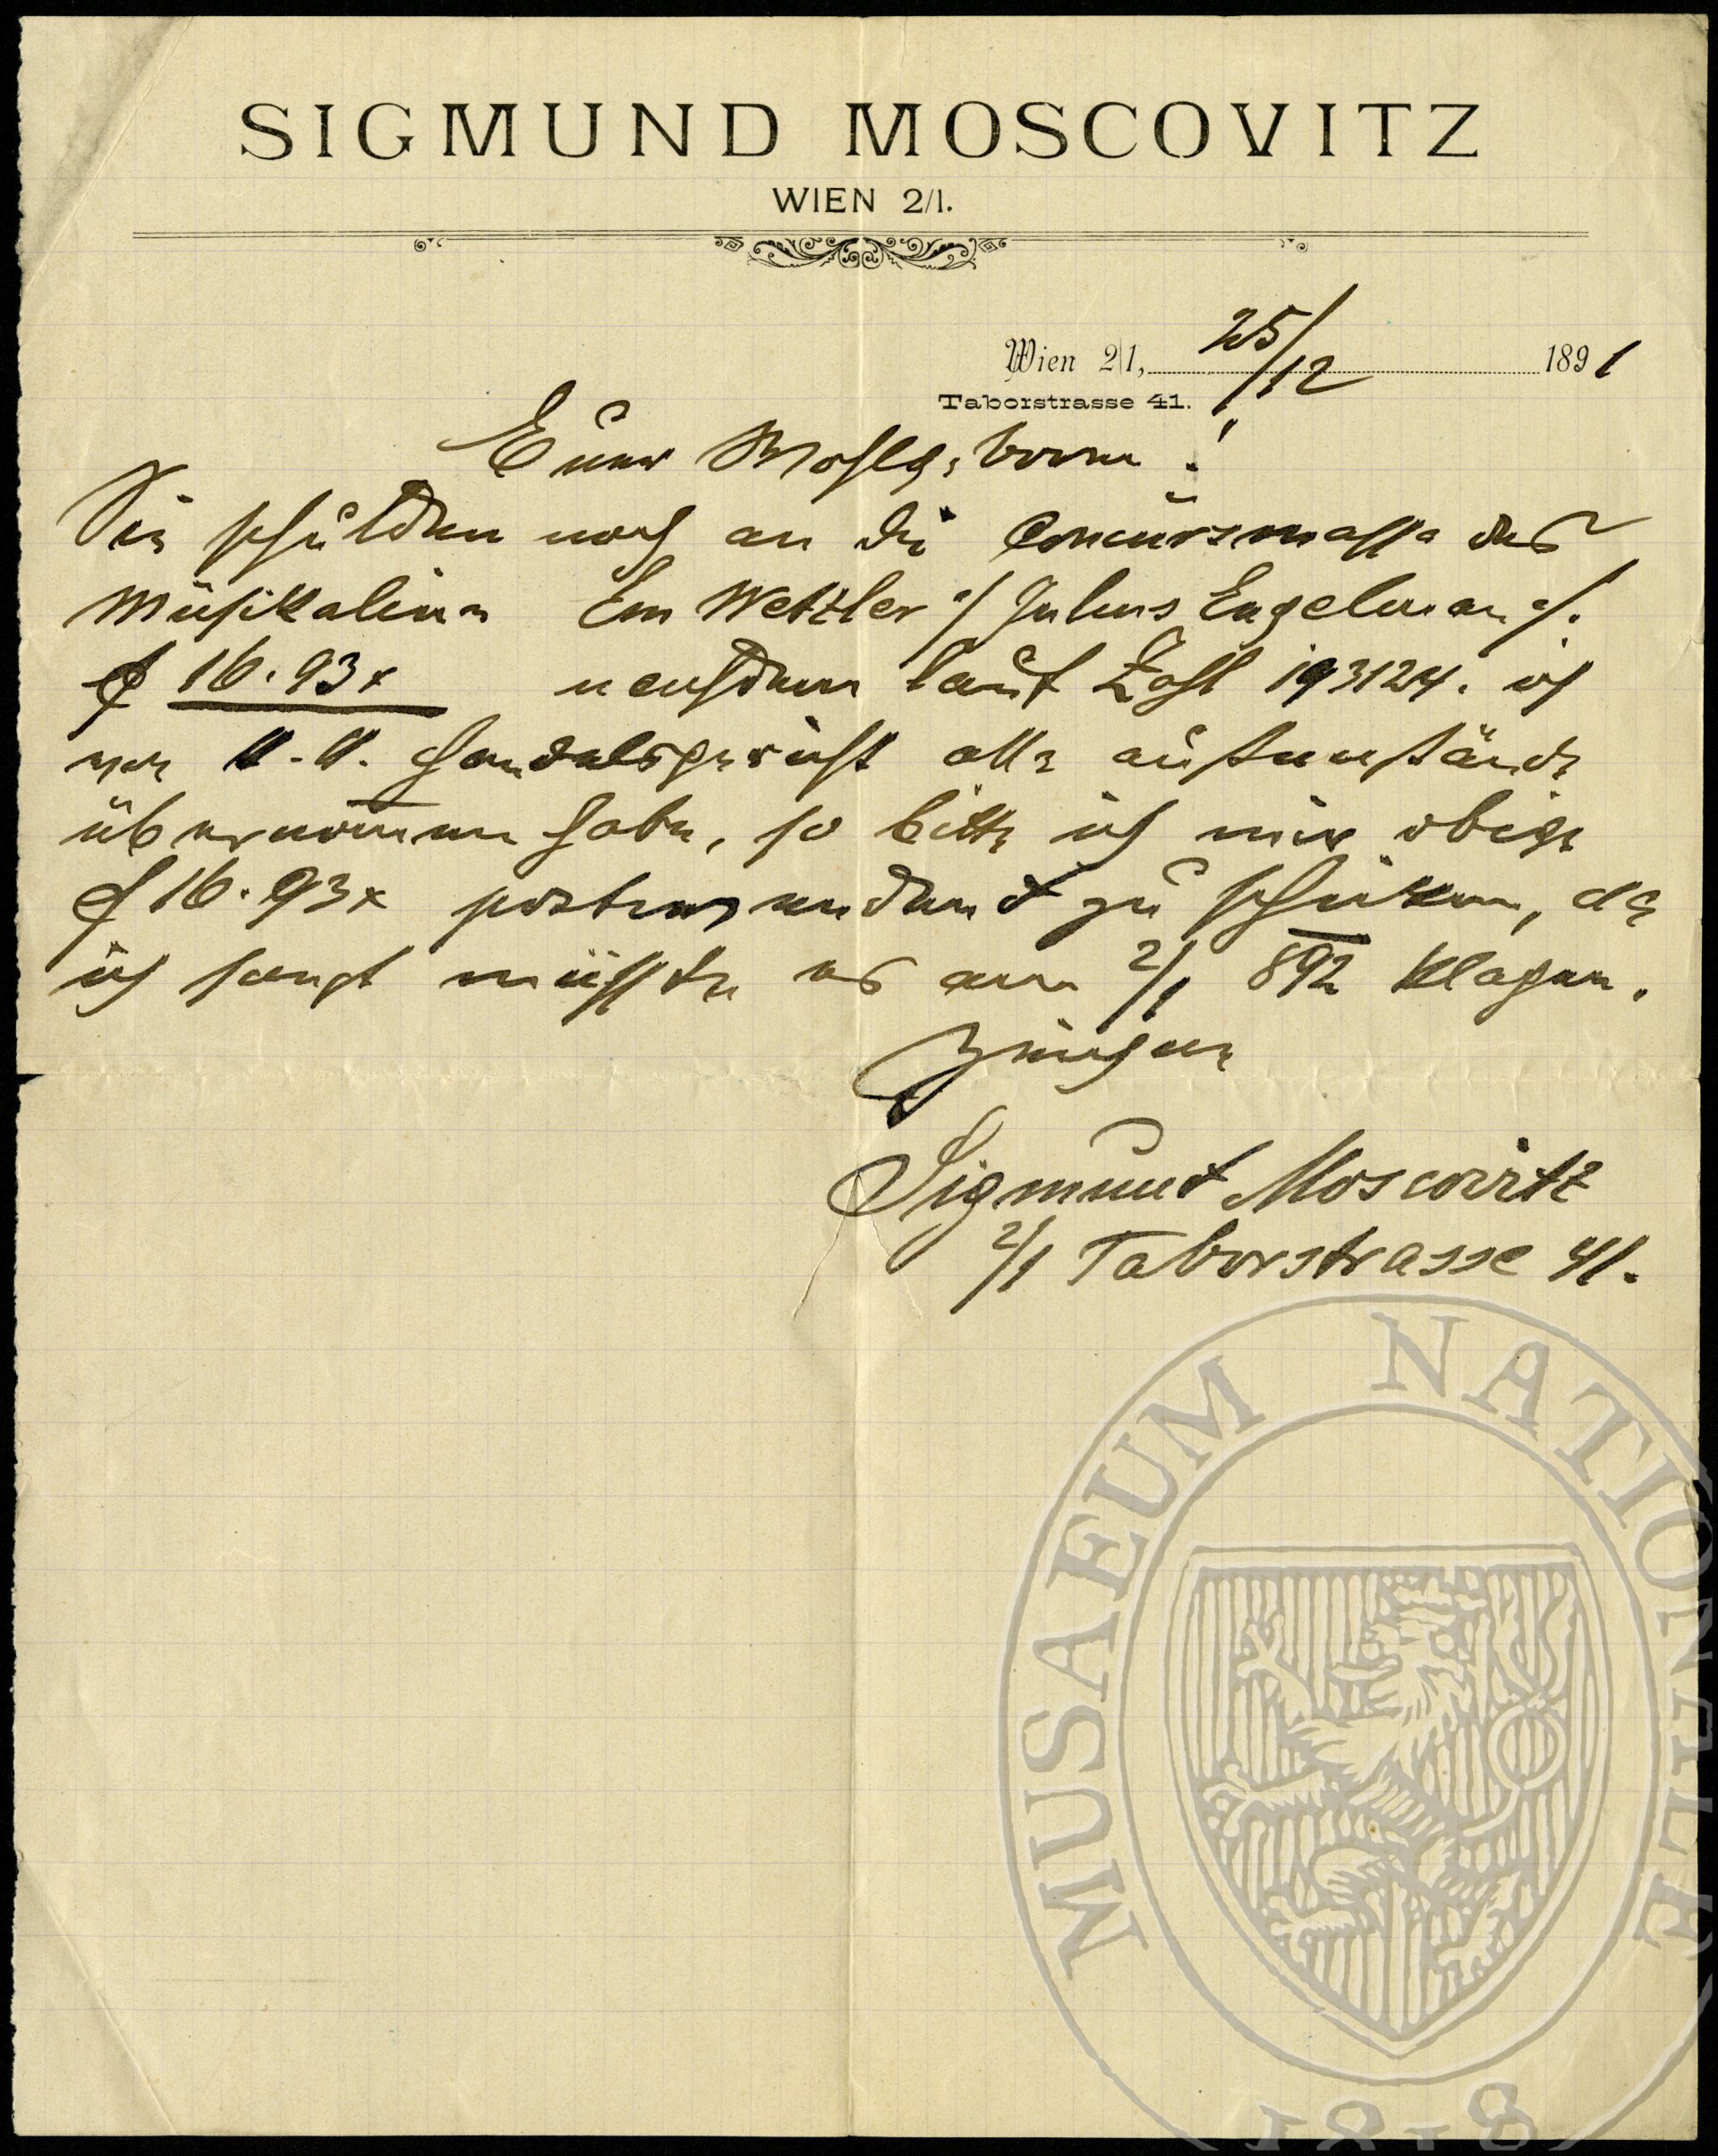 SIGMUND MOSCOVITZ
WIEN 2/1.
Wien 2/1, 25/12 1891
Taborstrasse 41.
Euer Wohlgeboren!
Sie schulden noch an die Concursmassa der
Musikalien Em Wetzler / Julius Engelman
f 16.93x nachdem laut Zahl 193124. ich
vom K.K. Handelsgericht alle
übernommen habe, so bitte ich mir obige
f 16.93x postwendend zu schicken, da
ich sonst müsste es am 2/1 892 klagen.
Sigmund Moscovitz
2/1 Taborstrasse 41.
MUSAEUM NATIONALE
1818